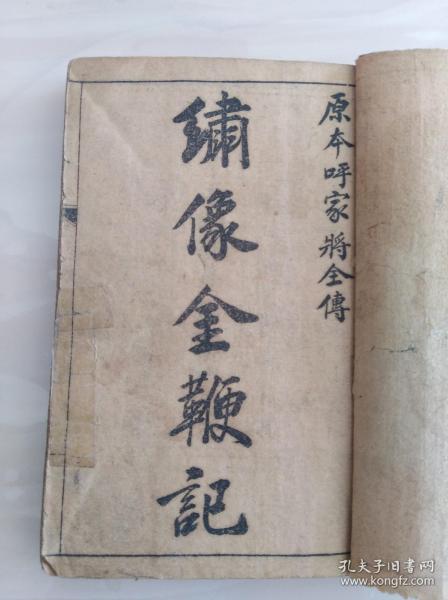 原本呼家將全傳
繡像金鞭記
孔夫子旧书网
www.kongfz.com